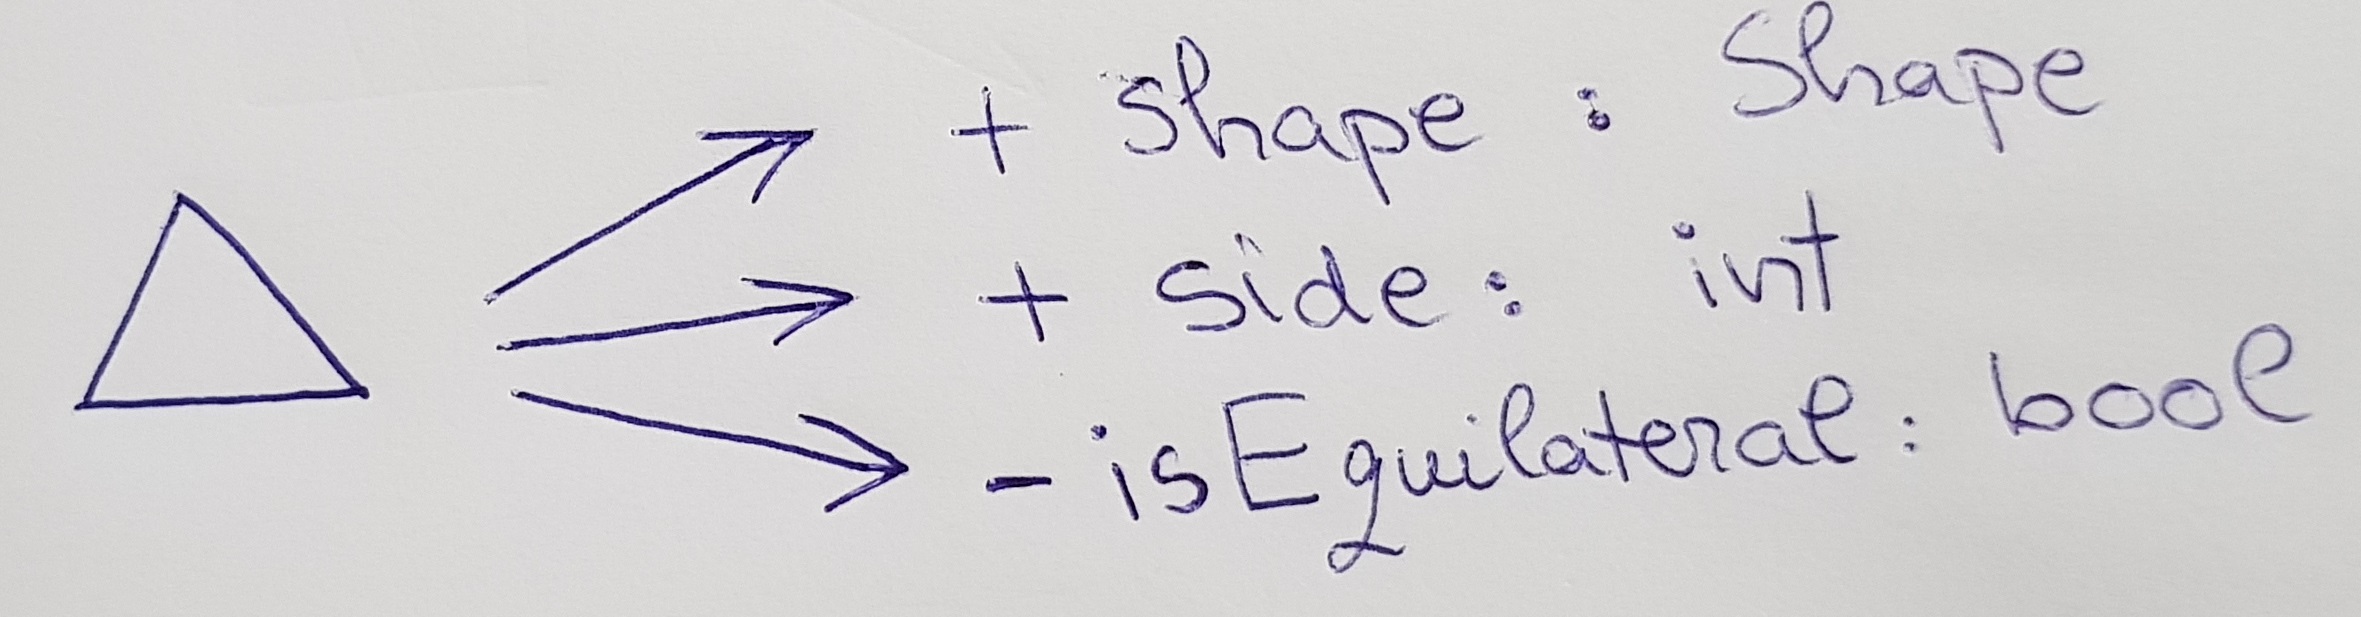 + shape : Shape
+ side: int
- isEquilateral: bool